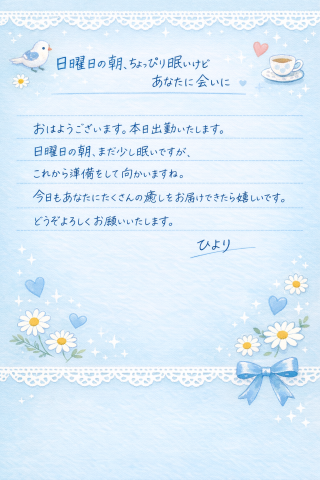 日曜日の朝、ちょっぴり眠いけど
あなたに会いに
おはようございます。本日出勤いたします。
日曜日の朝、まだ少し眠いですが、
これから準備をして向かいますね。
今日もあなたにたくさんの癒しをお届けできたら嬉しいです。
どうぞよろしくお願いいたします。
ひより